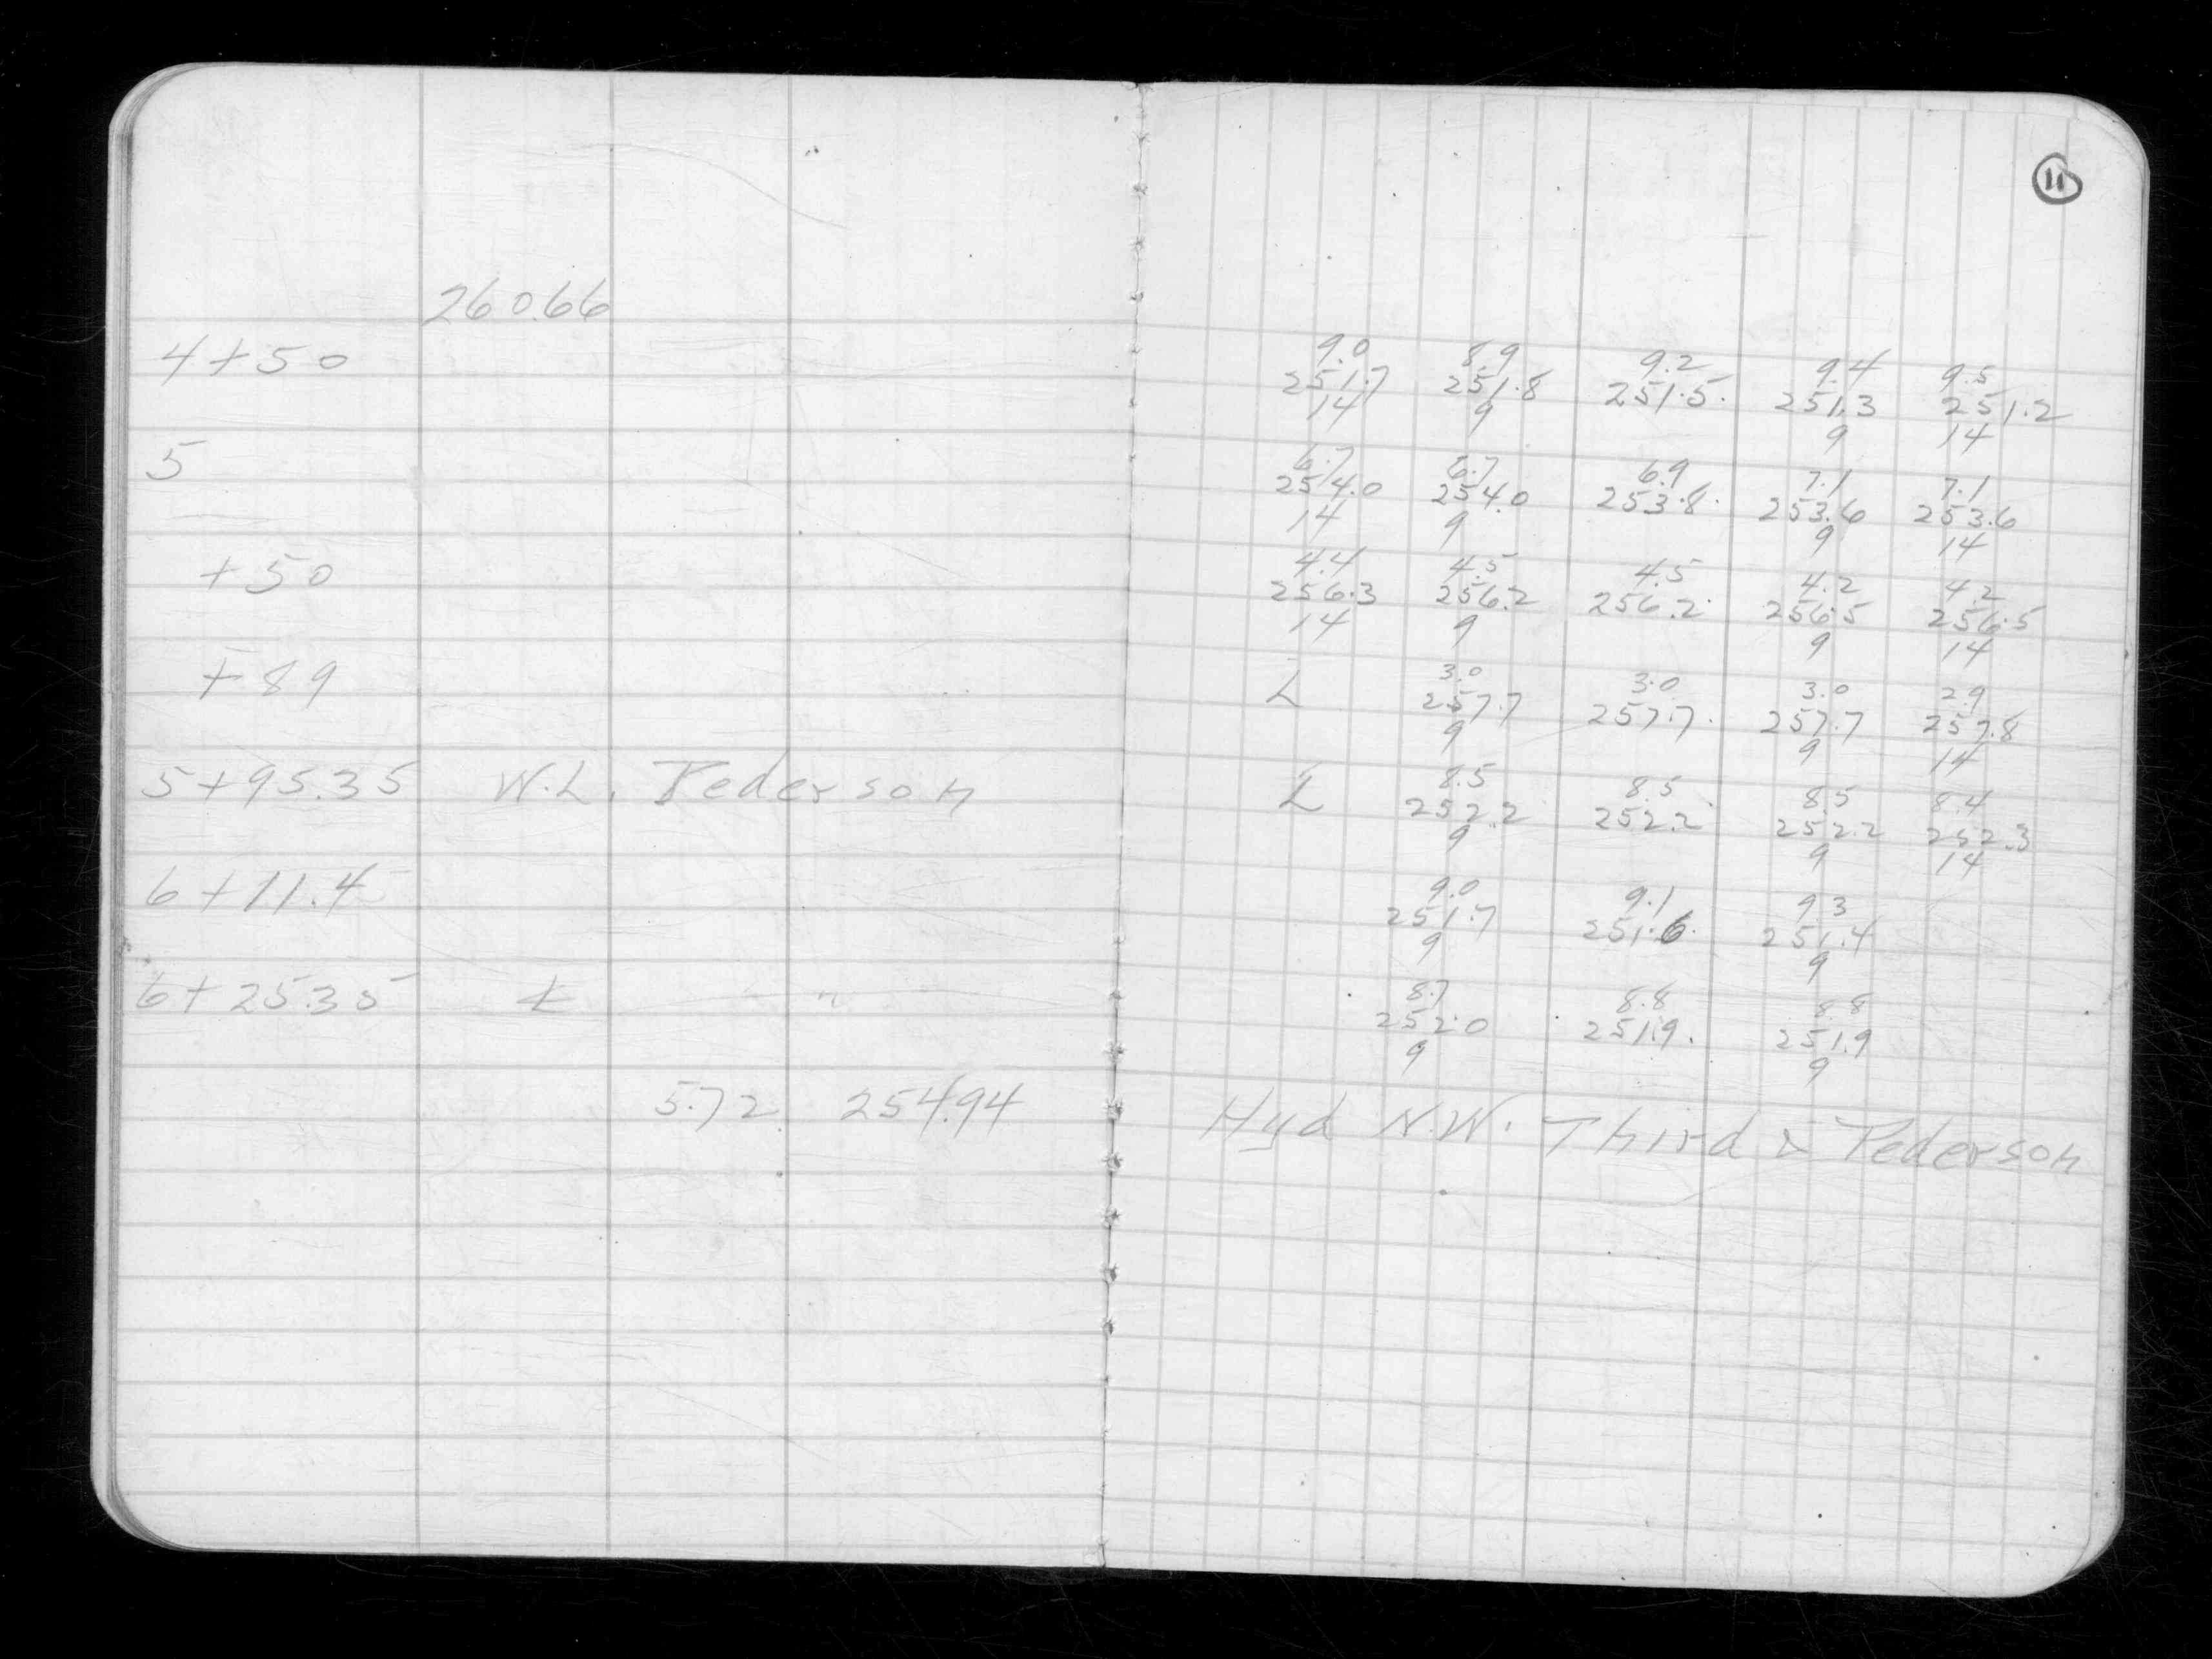 11
260.66
4+50
9.0 8.9 9.2 9.4 9.5
251.7 251.8 251.5 251.3 251.2
14 9 9 14
5
6.7 6.7 6.9 7.1 7.1
254.0 254.0 253.8 253.6 253.6
14 9 9 14
+50
4.4 4.5 4.5 4.2 4.2
256.3 256.2 256.2 256.5 256.5
14 9 9 14
+89
3.0 3.0 3.0 2.9
L 257.7 257.7 257.7 257.8
9 9 14
5+95.35 W.L. Pederson
8.5 8.5 8.5 8.4
L 252.2 252.2 252.2 252.3
9 9 14
6+11.4
9.0 9.1 9.3
251.7 251.6 251.4
9 9
6+25.35 "
8.7 8.8 8.8
252.0 251.9 251.9
9 9
5.72 254.94 Hyd N.W. Third & Pederson